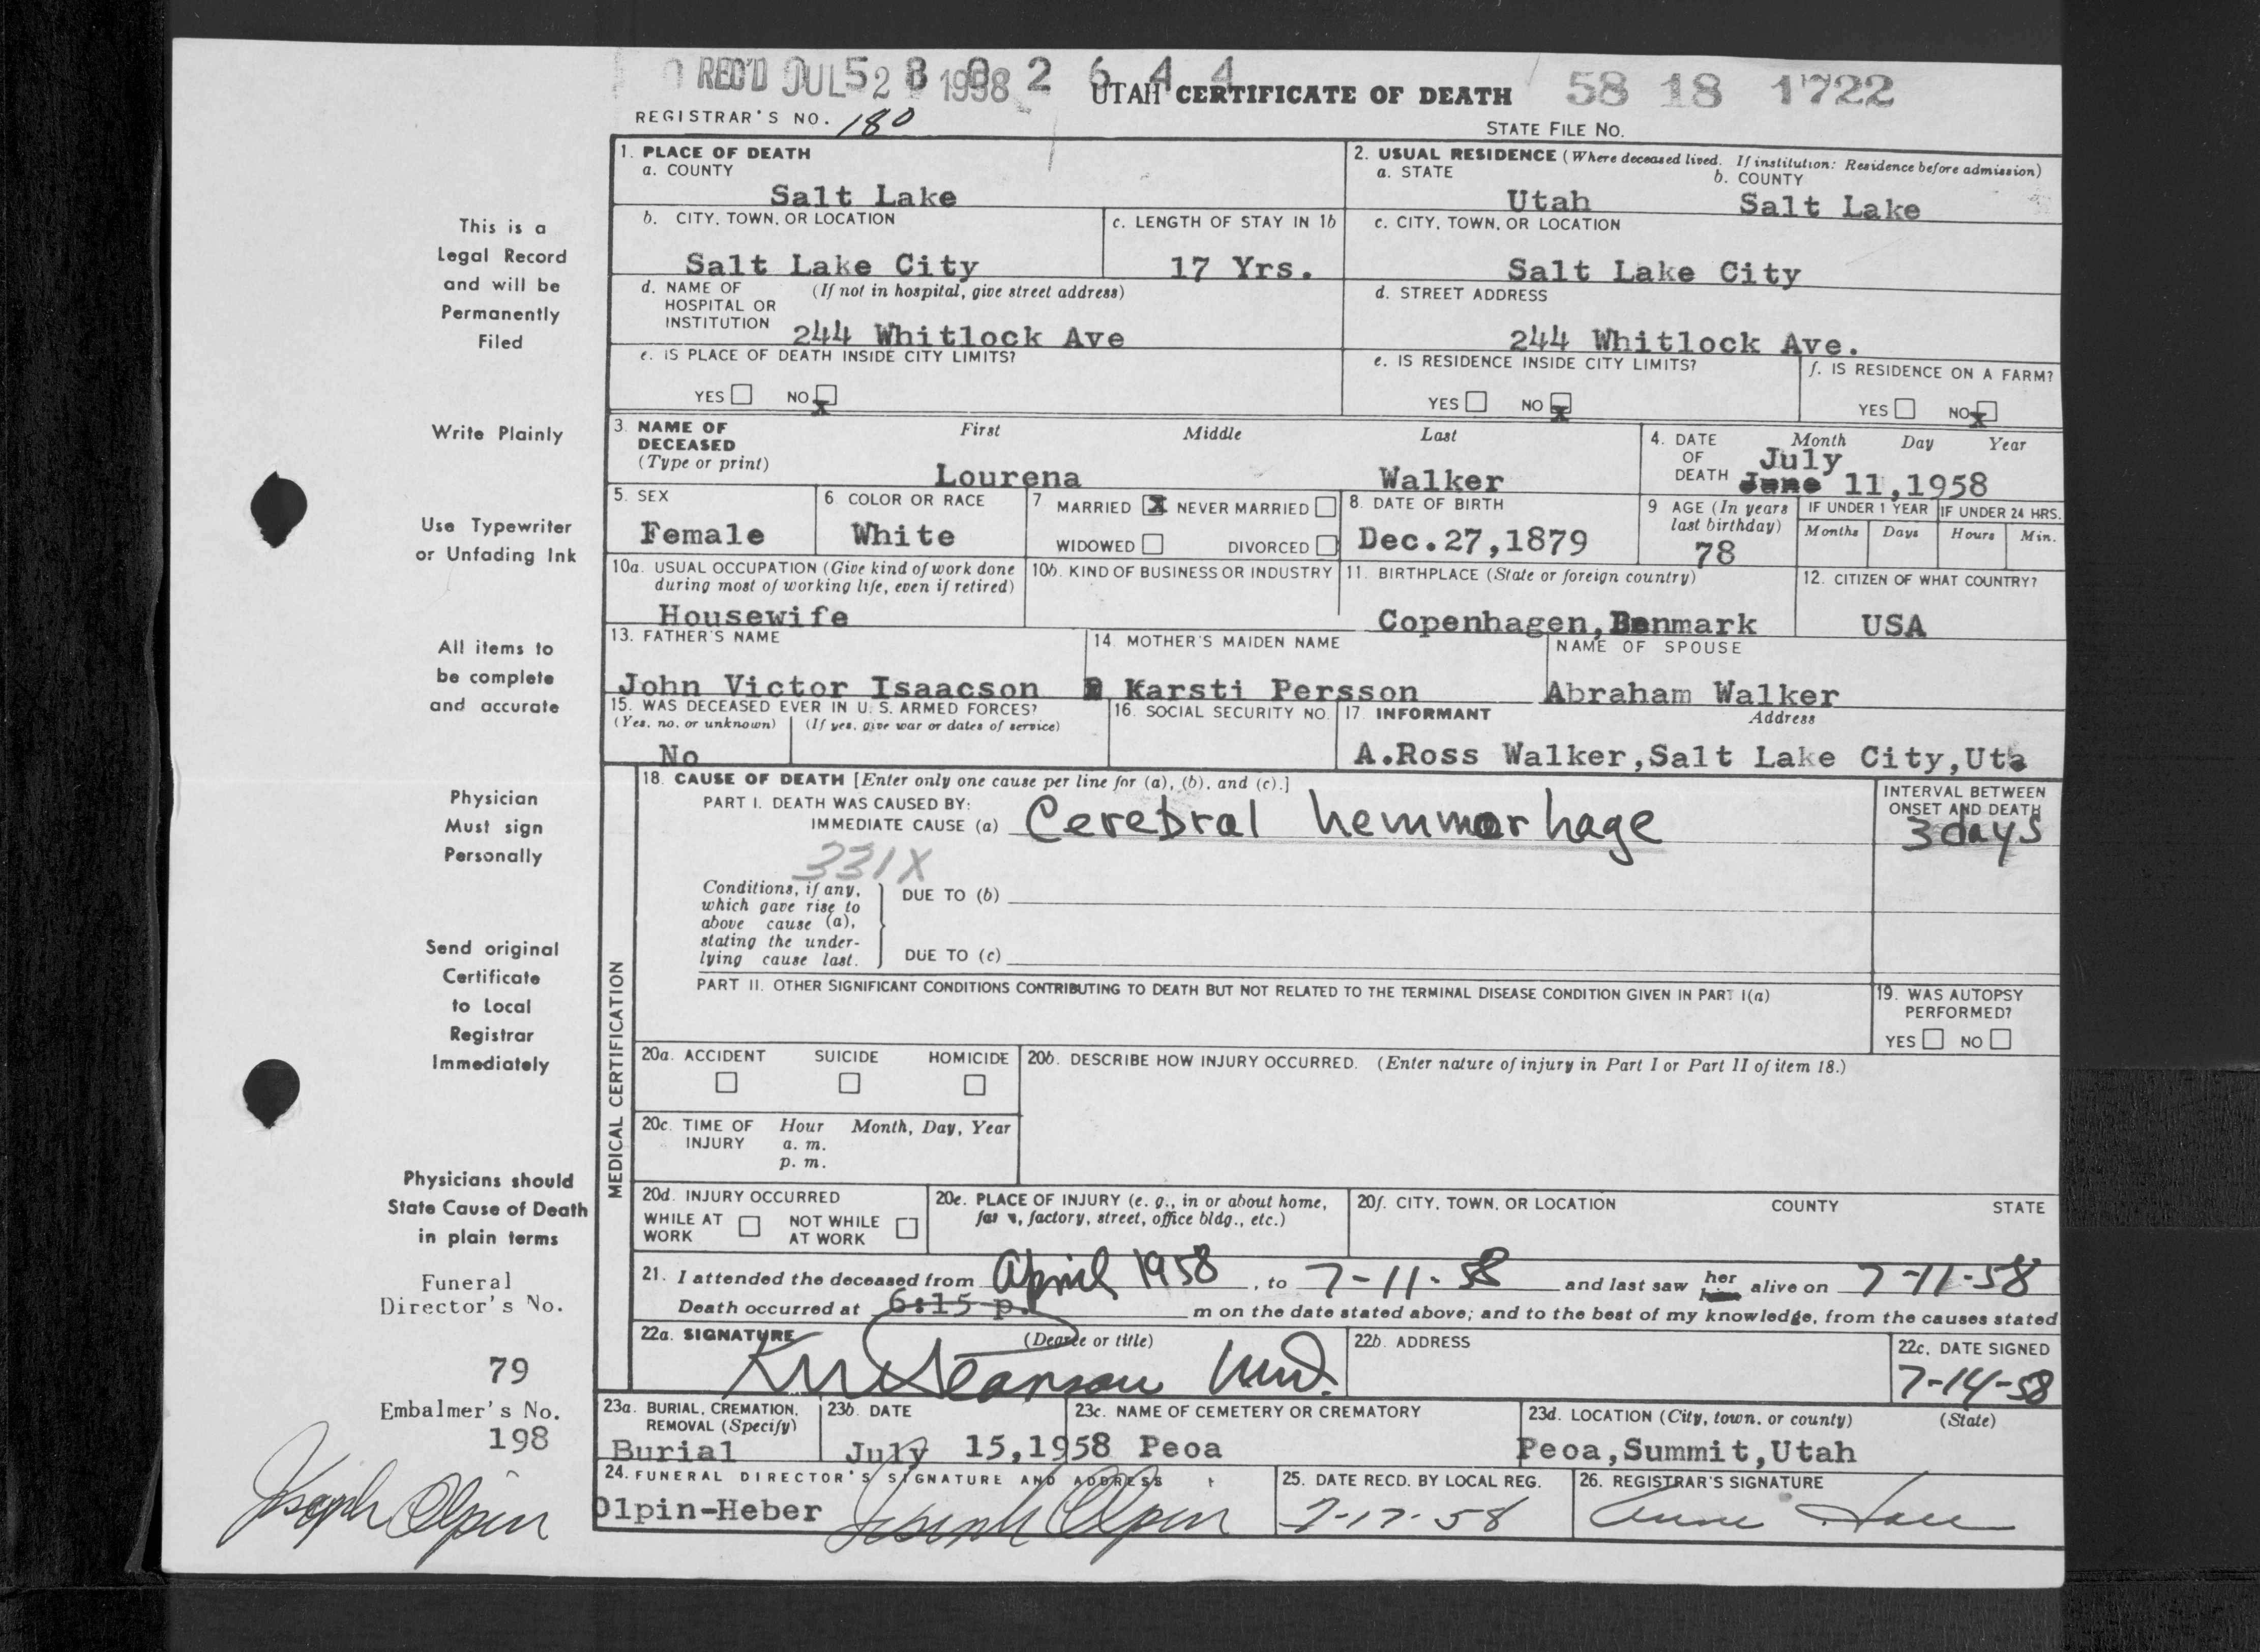 REC'D JUL 28 1958
UTAH CERTIFICATE OF DEATH 58 18 1722
REGISTRAR'S NO. 180
STATE FILE NO.
1. PLACE OF DEATH
a. COUNTY
Salt Lake
2. USUAL RESIDENCE (Where deceased lived. If institution: Residence before admission)
a. STATE b. COUNTY
Utah Salt Lake
b. CITY, TOWN, OR LOCATION c. LENGTH OF STAY IN 1b
Salt Lake City 17 Yrs.
c. CITY, TOWN, OR LOCATION
Salt Lake City
d. NAME OF (If not in hospital, give street address)
HOSPITAL OR
INSTITUTION 244 Whitlock Ave
d. STREET ADDRESS
244 Whitlock Ave.
e. IS PLACE OF DEATH INSIDE CITY LIMITS?
YES NO X
e. IS RESIDENCE INSIDE CITY LIMITS?
YES NO X
f. IS RESIDENCE ON A FARM?
YES NO X
3. NAME OF First Middle Last
DECEASED
(Type or print)
Lourena Walker
4. DATE Month Day Year
OF July
DEATH June 11,1958
5. SEX
Female
6. COLOR OR RACE
White
7 MARRIED X NEVER MARRIED
WIDOWED DIVORCED
8. DATE OF BIRTH
Dec.27,1879
9 AGE (In years
last birthday)
78
IF UNDER 1 YEAR IF UNDER 24 HRS.
Months Days Hours Min.
10a. USUAL OCCUPATION (Give kind of work done
during most of working life, even if retired)
Housewife
10b. KIND OF BUSINESS OR INDUSTRY
11. BIRTHPLACE (State or foreign country)
Copenhagen, Denmark
12. CITIZEN OF WHAT COUNTRY?
USA
13. FATHER'S NAME
John Victor Isaacson
14. MOTHER'S MAIDEN NAME
Karsti Persson
NAME OF SPOUSE
Abraham Walker
15. WAS DECEASED EVER IN U. S. ARMED FORCES?
(Yes, no, or unknown) (If yes, give war or dates of service)
No
16. SOCIAL SECURITY NO.
17. INFORMANT Address
A.Ross Walker,Salt Lake City,Uta
MEDICAL CERTIFICATION
18. CAUSE OF DEATH [Enter only one cause per line for (a), (b), and (c).]
PART I. DEATH WAS CAUSED BY:
IMMEDIATE CAUSE (a) Cerebral hemmorhage
INTERVAL BETWEEN
ONSET AND DEATH
3 days
331X
Conditions, if any,
which gave rise to
above cause (a),
stating the under-
lying cause last.
DUE TO (b)
DUE TO (c)
PART II. OTHER SIGNIFICANT CONDITIONS CONTRIBUTING TO DEATH BUT NOT RELATED TO THE TERMINAL DISEASE CONDITION GIVEN IN PART I(a)
19. WAS AUTOPSY
PERFORMED?
YES NO
20a. ACCIDENT SUICIDE HOMICIDE
20b. DESCRIBE HOW INJURY OCCURRED. (Enter nature of injury in Part I or Part II of item 18.)
20c. TIME OF Hour Month, Day, Year
INJURY a. m.
p. m.
20d. INJURY OCCURRED
WHILE AT NOT WHILE
WORK AT WORK
20e. PLACE OF INJURY (e. g., in or about home,
factory, street, office bldg., etc.)
20f. CITY, TOWN, OR LOCATION COUNTY STATE
21. I attended the deceased from April 1958, to 7-11-58 and last saw her alive on 7-11-58
Death occurred at 6:15 p. m on the date stated above; and to the best of my knowledge, from the causes stated
22a. SIGNATURE (Degree or title)
22b. ADDRESS
22c. DATE SIGNED
7-14-58
23a. BURIAL, CREMATION,
REMOVAL (Specify)
Burial
23b. DATE
July 15,1958
23c. NAME OF CEMETERY OR CREMATORY
Peoa
23d. LOCATION (City, town, or county) (State)
Peoa,Summit,Utah
24. FUNERAL DIRECTOR'S SIGNATURE AND ADDRESS
Olpin-Heber Joseph Olpin
25. DATE RECD. BY LOCAL REG.
7-17-58
26. REGISTRAR'S SIGNATURE
This is a
Legal Record
and will be
Permanently
Filed
Write Plainly
Use Typewriter
or Unfading Ink
All items to
be complete
and accurate
Physician
Must sign
Personally
Send original
Certificate
to Local
Registrar
Immediately
Physicians should
State Cause of Death
in plain terms
Funeral
Director's No.
79
Embalmer's No.
198
Joseph Olpin